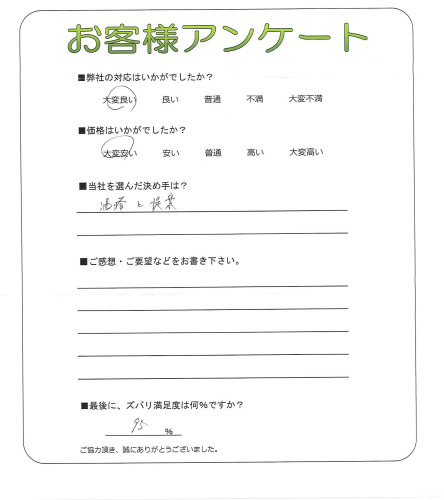 お客様アンケート
■弊社の対応はいかがでしたか？
大変良い 良い 普通 不満 大変不満
■価格はいかがでしたか？
大変安い 安い 普通 高い 大変高い
■当社を選んだ決め手は？
と提案
■ご感想・ご要望などをお書き下さい。
■最後に、ズバリ満足度は何%ですか？
95 %
ご協力頂き、誠にありがとうございました。